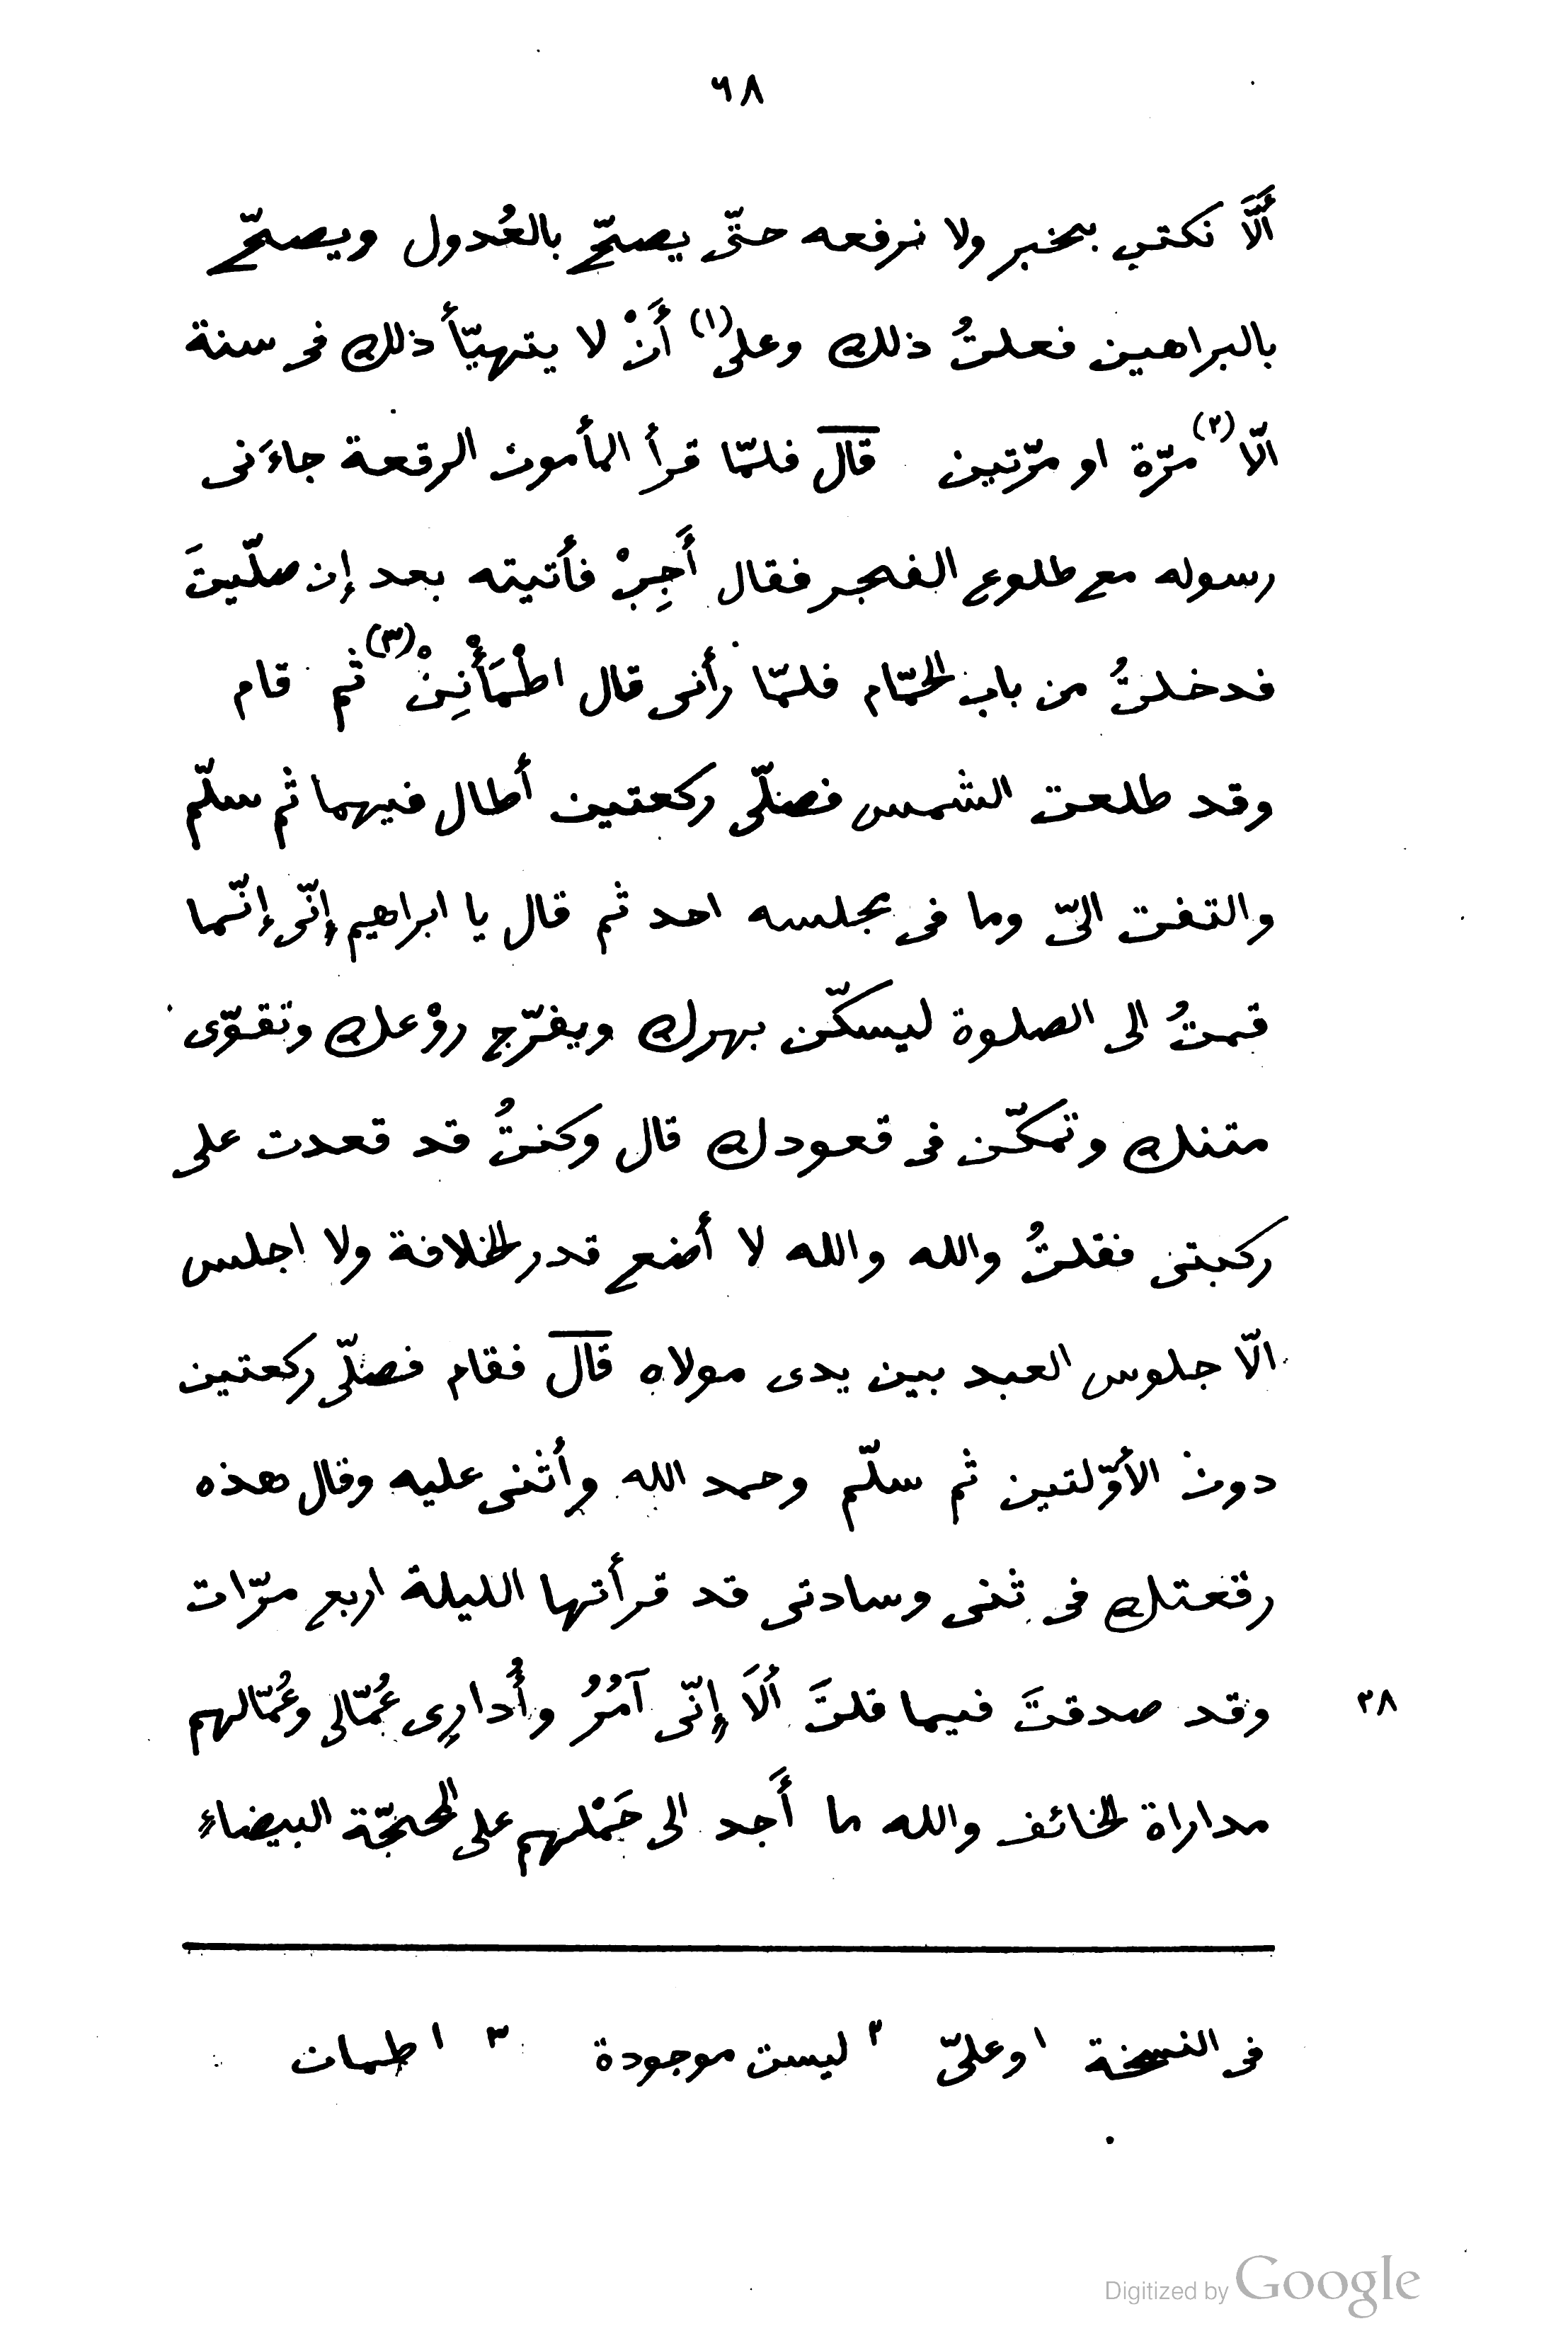 ٦٨
أَلَّا نكتب بخبر ولا نرفعه حتّى يصحّ بالعُدول ويصحّ
بالبراهين فعلتُ ذلك وعلى(١) أَنْ لا يتهيّأ ذلك فى سنة
الّا(٢) مرّة او مرّتين قال فلمّا قرأ المأمون الرقعة جاءَنى
رسوله مع طلوع الفجر فقال أَجِبْ فأتيته بعد إن صلّيتَ
فدخلتُ من باب الحمّام فلمّا رأنى قال اطْمَأْنِنْ(٣) ثم قام
وقد طلعت الشمس فصلّى ركعتين أطال فيهما ثم سلّم
والتفت الىّ وما فى مجلسه احد ثم قال يا ابراهيم إنّى إنّما
قمتُ الى الصلوة ليسكّن بهرك ويفرّج روْعك وتقوّى
متنك وتمكّن فى قعودك قال وكنتُ قد قعدت على
ركبتى فقلتُ والله والله لا أضع قدر الخلافة ولا اجلس
الّا جلوس العبد بين يدى مولاه قال فقام فصلّى ركعتين
دون الأوّلتين ثم سلّم وحمد الله وأثنى عليه وقال هذه
رقعتك فى ثنى وسادتى قد قرأتها الليلة اربع مرّات
وقد صدقتَ فيما قلتَ أَلَا إِنّى آمُرُ وأُدارِى عُمّالى وعُمّالهم
٣٨
مداراة الخائف والله ما أَجد الى حَمْلهم على المحجّة البيضاء
فى النسخة ١ وعلىّ ٢ ليست موجودة ٣ اطمان
Digitized by Google